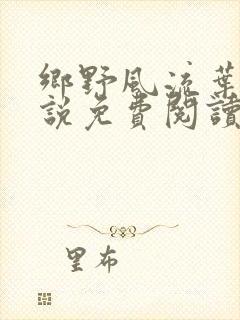 鄉野風流葉
說免費閱讀
里布